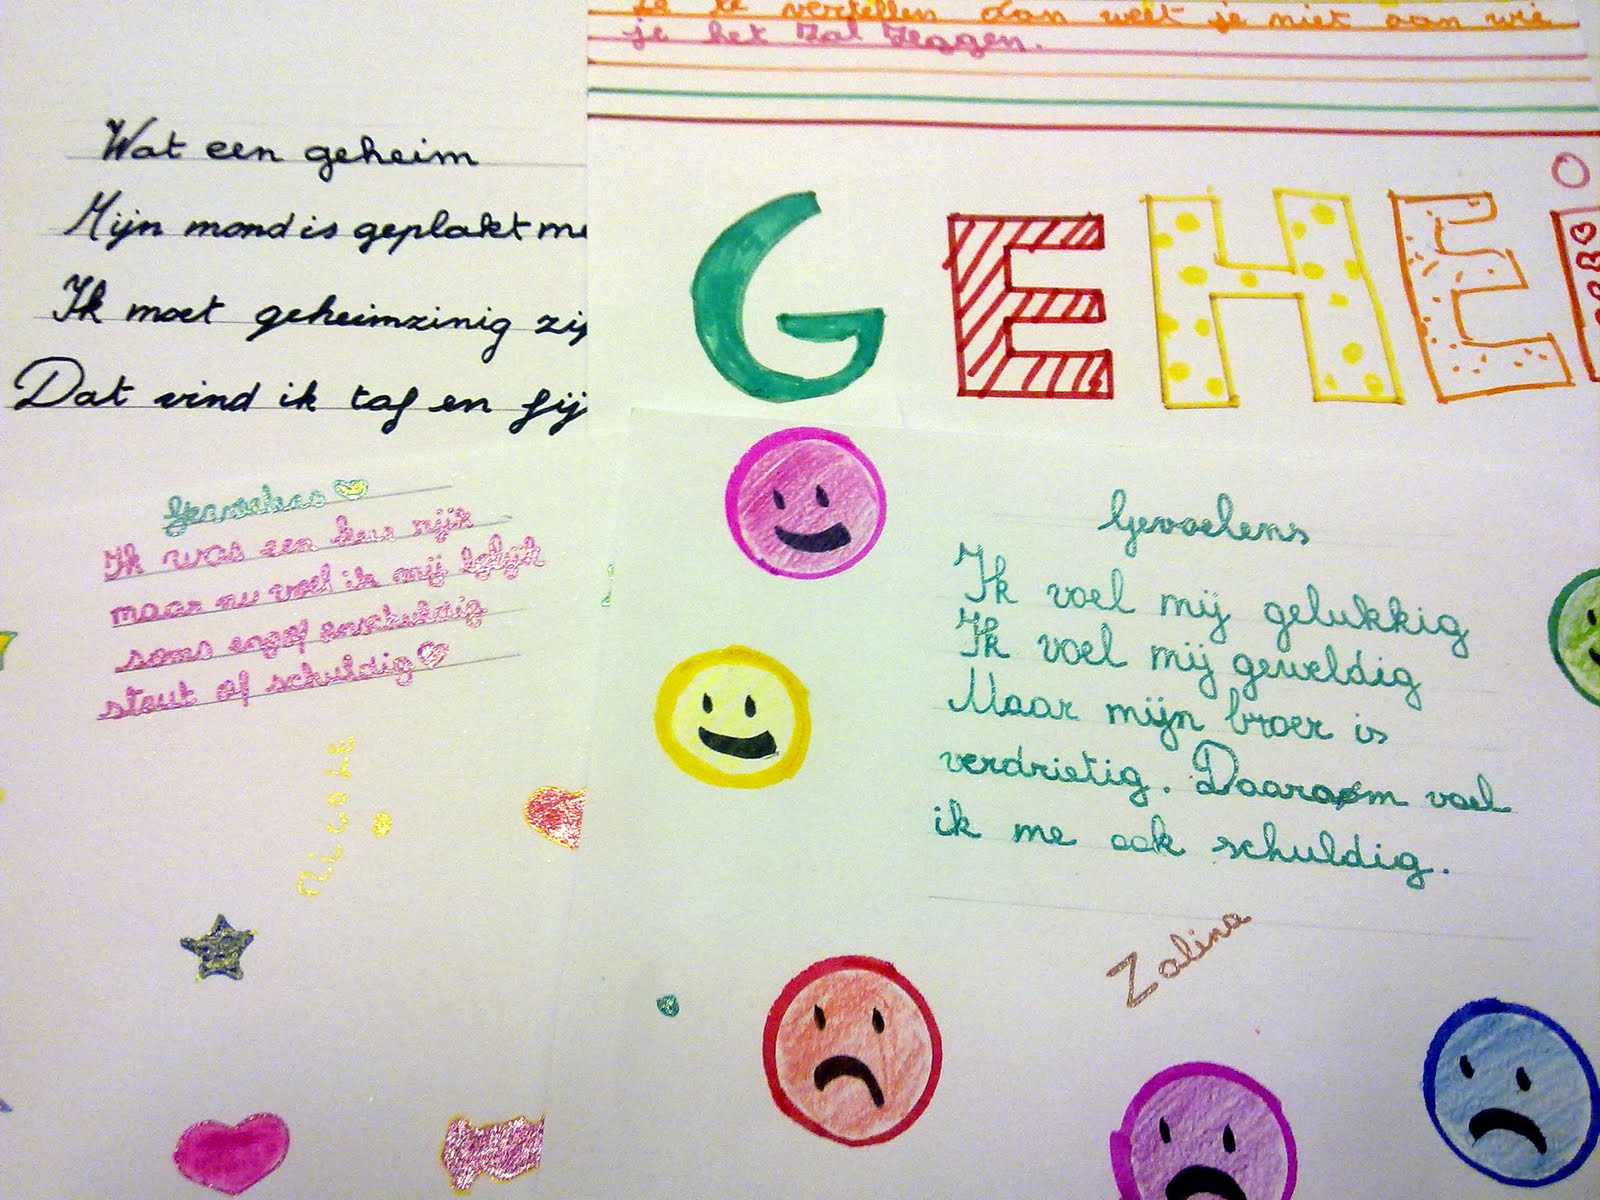 te vertellen dan weet je niet aan wie
je het zal zeggen.
Wat een geheim
Mijn mond is geplakt me
Ik moet geheimzinig zij
Dat vind ik taf en fij
GEHEI
Gevoelens
Ik was een keer rijk
maar nu voel ik mij
soms onschuldig
stout of schuldig
nicole
Gevoelens
Ik voel mij gelukkig
Ik voel mij geweldig
Maar mijn broer is
verdrietig. Daarom voel
ik me ook schuldig.
Zalina